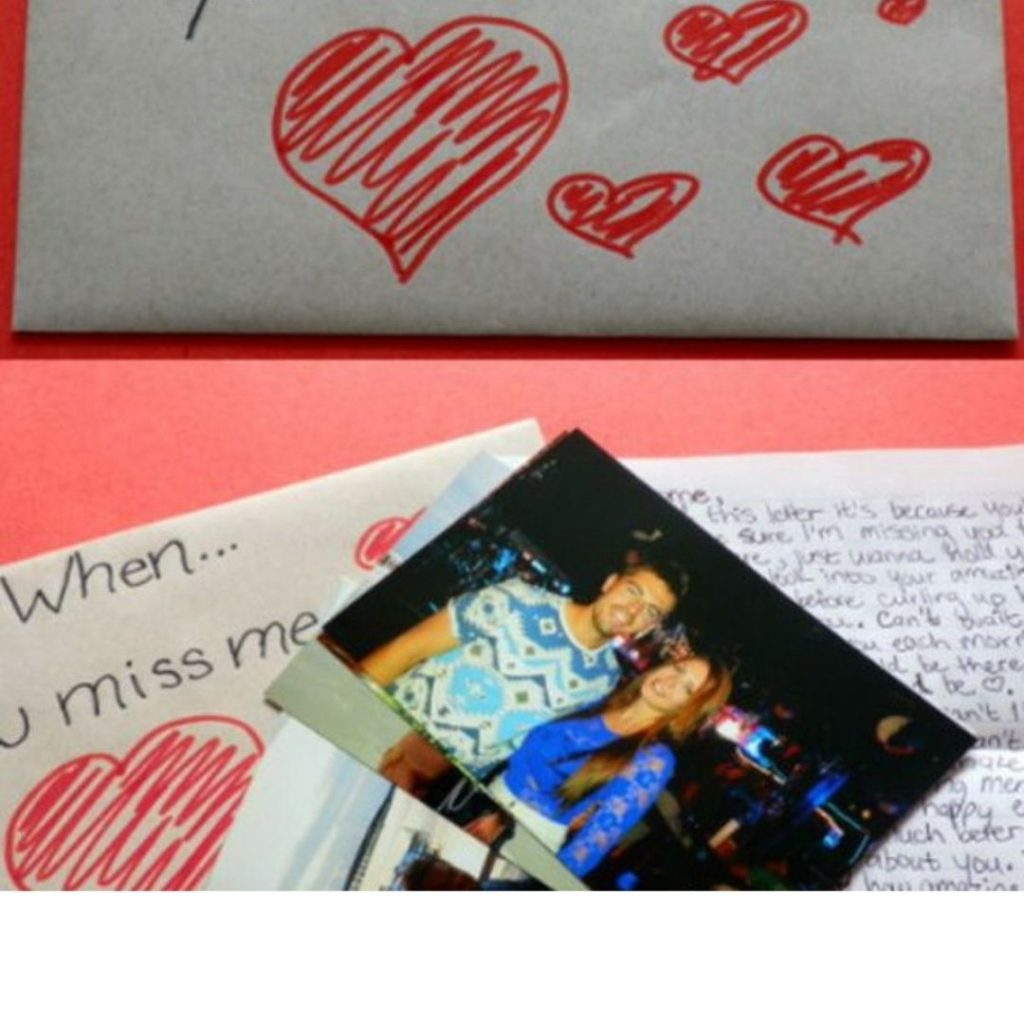 When...
u miss me
me,
this letter it's because you
sure I'm missing you
just wanna hold
into your
before curling up
Can't wait
each morn
be there
be ♡.
an't
mer
happy e
much better
about you.
how amazing